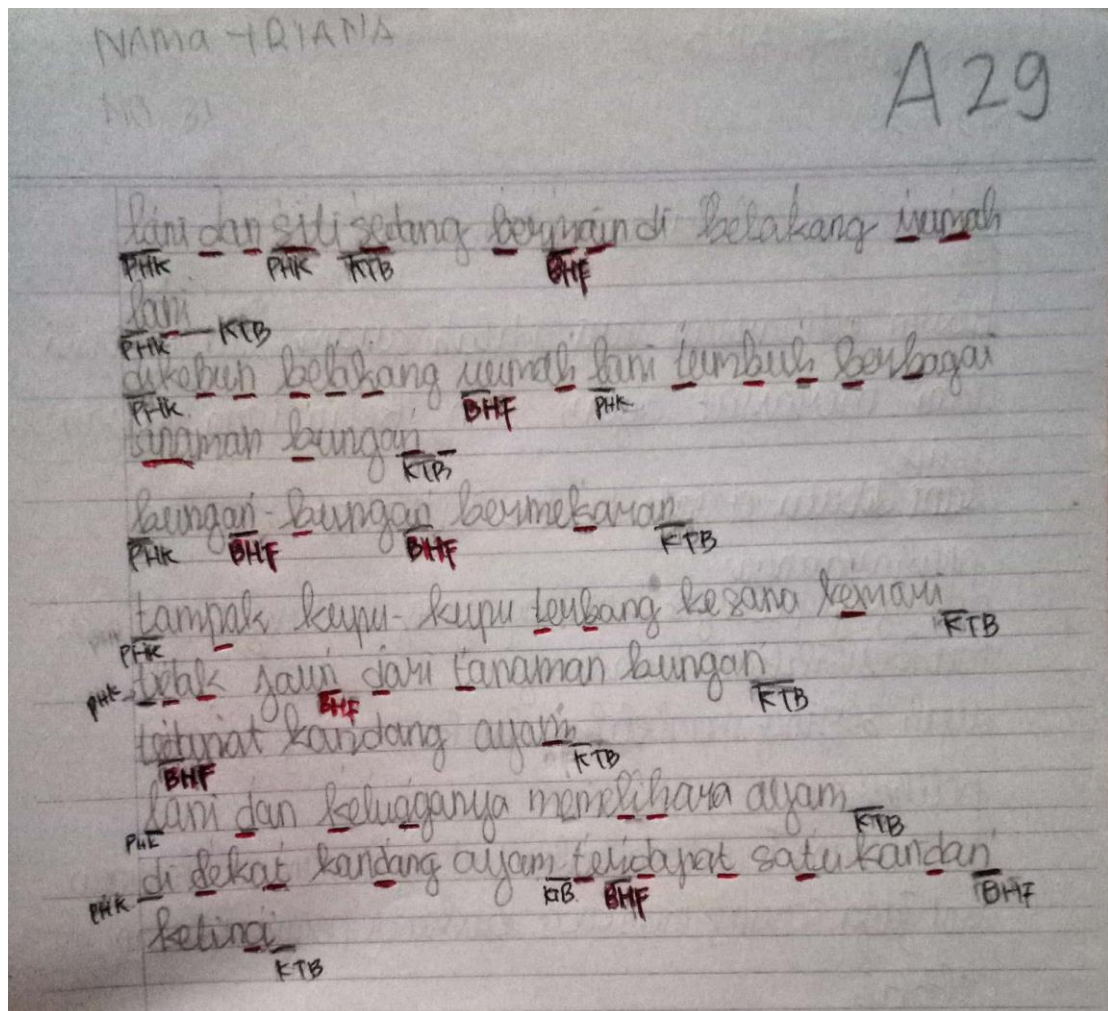 NAma IRIANA
NO 31
A29
lani dan siti sedang bermain di belakang rumah
PHK PHK KTB BHF
lani
PHK KTB
dikebun belakang rumah lani tumbuh berbagai
PHK BHF PHK
tanaman bungan
KTB
bungan-bungan bermekaran
PHK BHF BHF KTB
tampak kupu-kupu terbang kesana kemari
PHK KTB
PHK tidak jaun dari tanaman bungan
BHF KTB
terdapat kandang ayam
BHF KTB
lani dan keluaganya memelihara ayam
PHK KTB
di dekat kandang ayam terdapat satu kandan
PHK KTB BHF BHF
kelinci
KTB